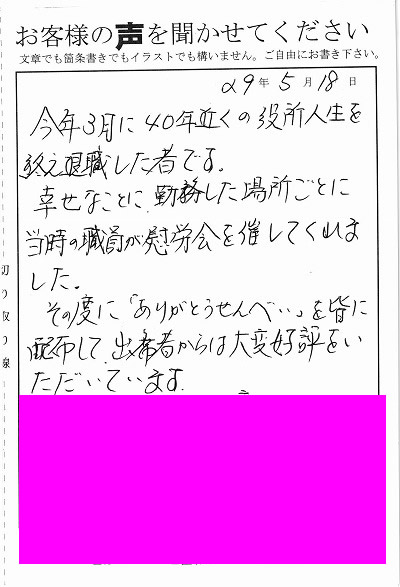 お客様の声を聞かせてください
文章でも箇条書きでもイラストでも構いません。ご自由にお書き下さい。
29年5月18日
今年3月に40年近くの役所人生を
終え退職した者です。
幸せなことに、勤務した場所ごとに
当時の職員が慰労会を催してくれま
した。
その度に「ありがとうせんべい」を皆に
配布して、出席者からは大変好評をい
ただいています。
切り取り線